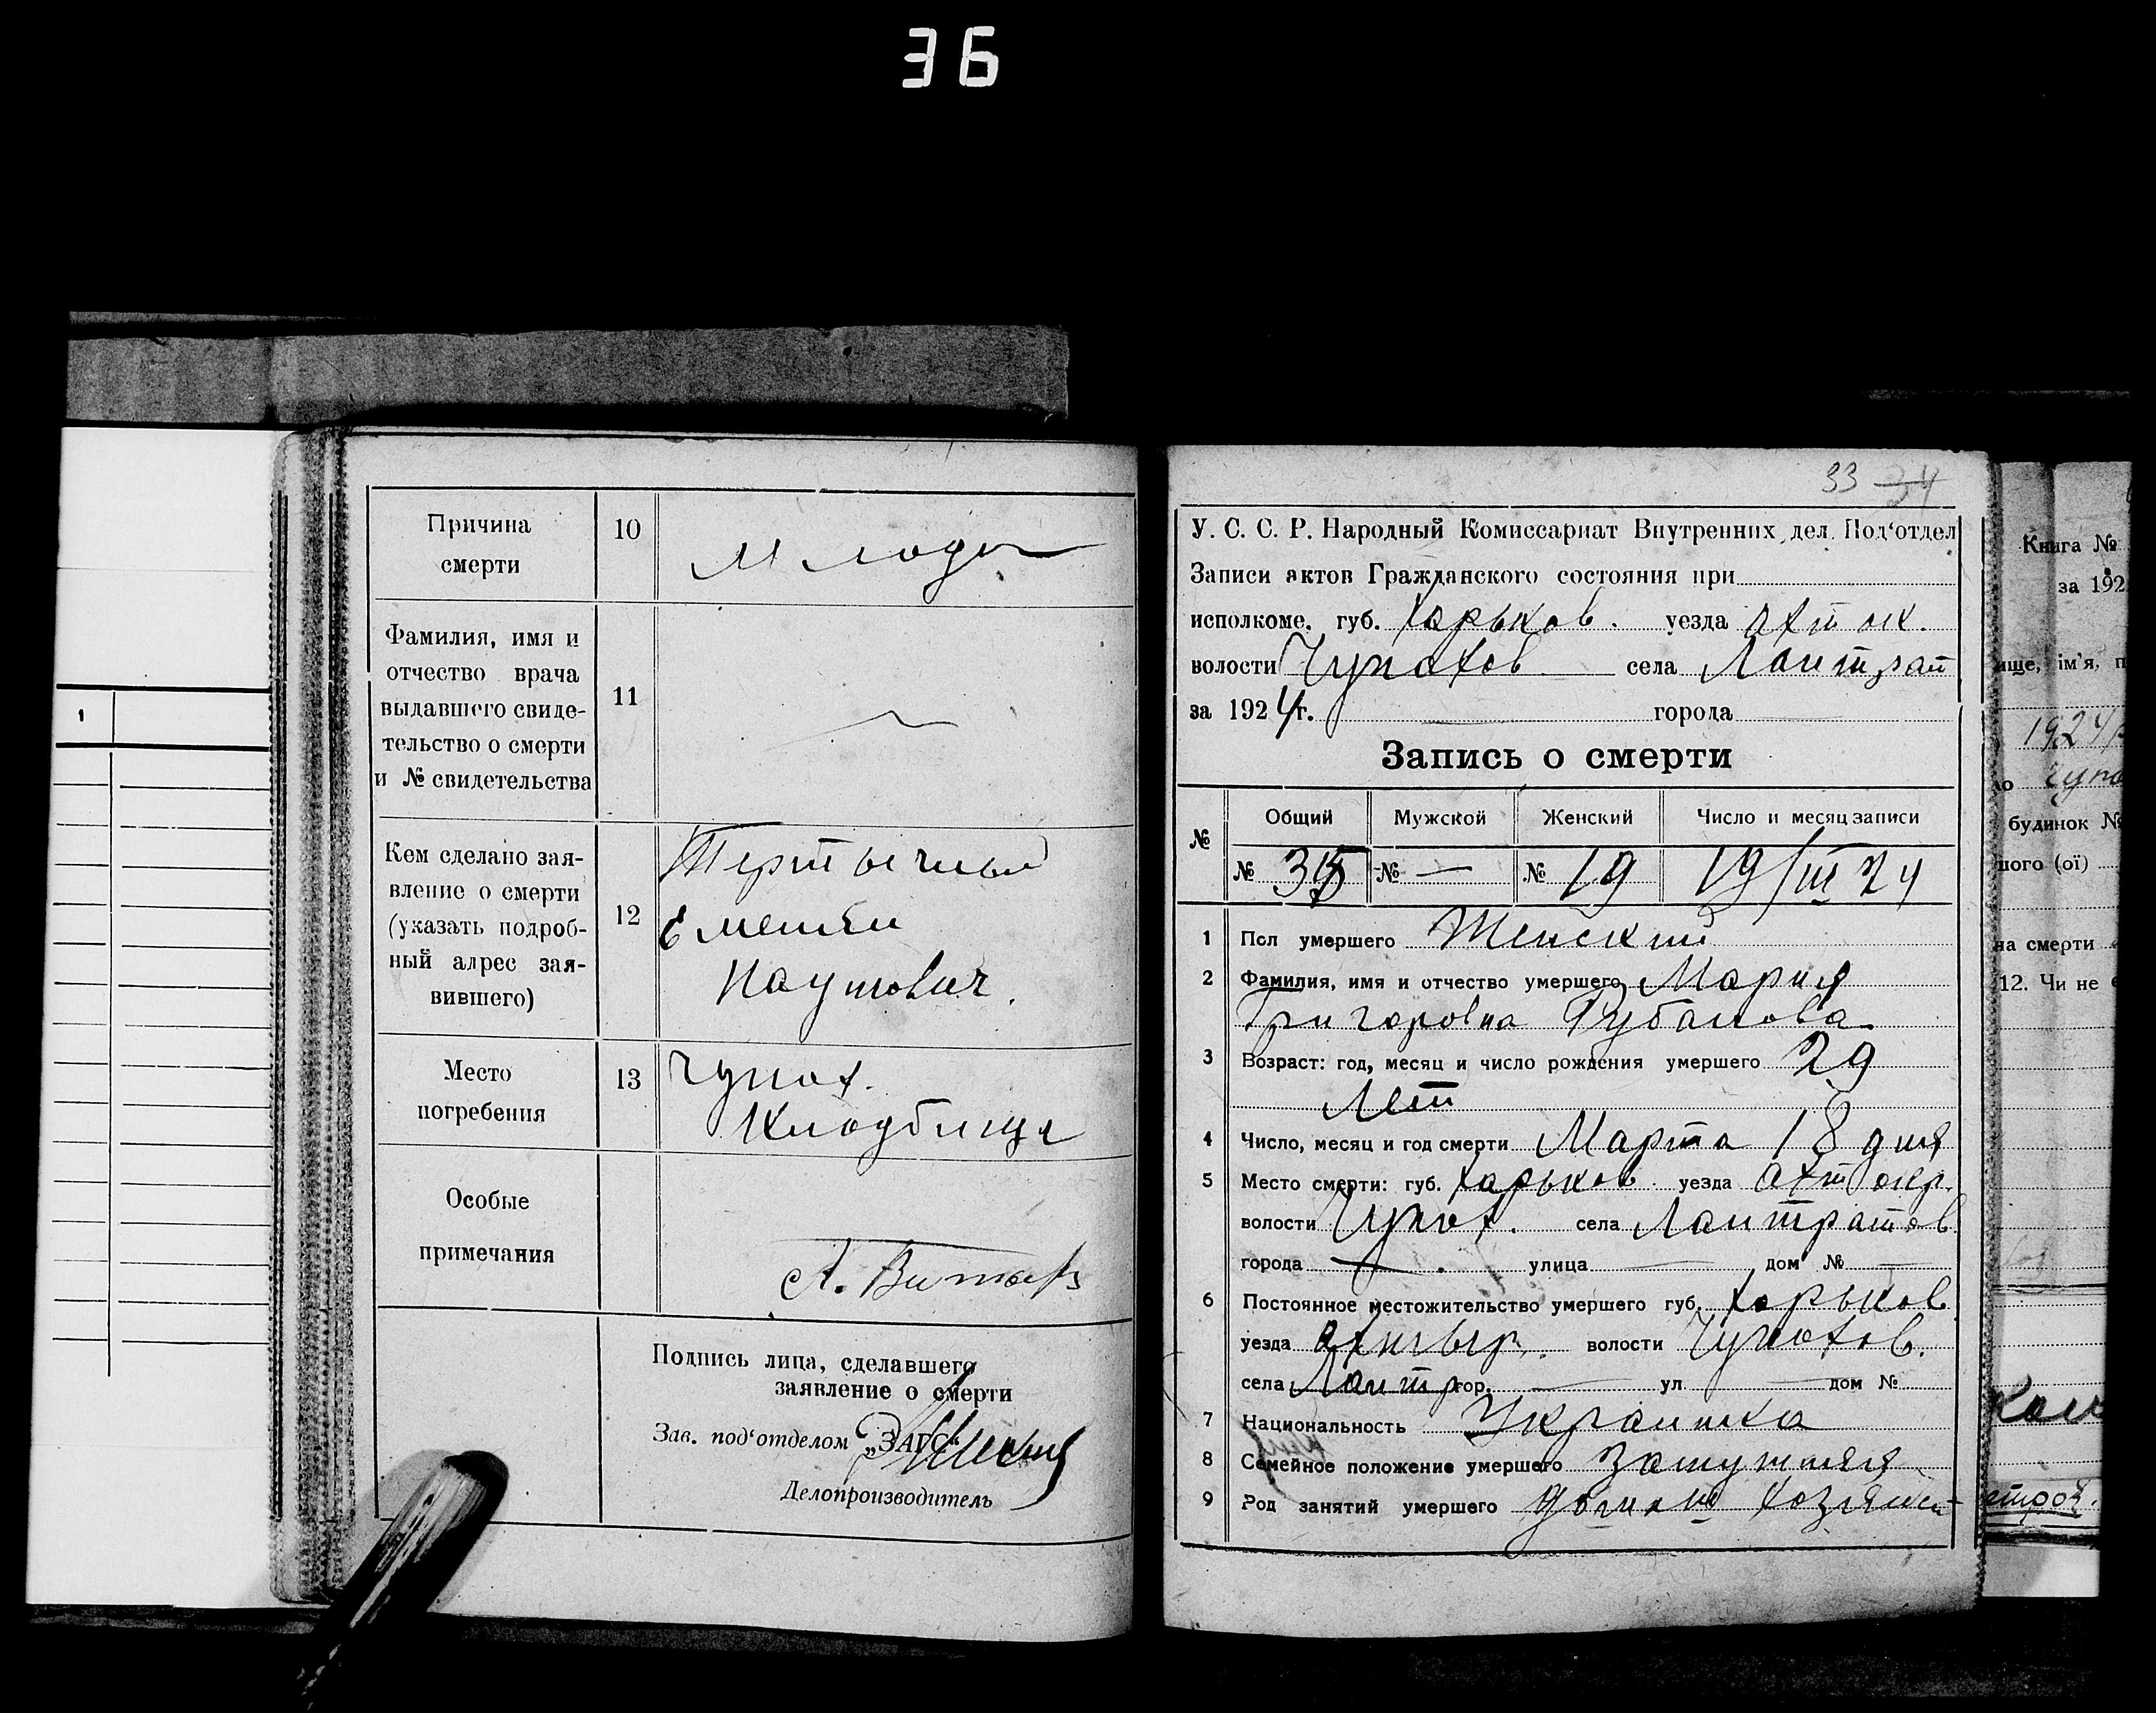 36
Причина
смерти
10
Фамилия, имя и
отчество врача
выдавшего свиде-
тельство о смерти
и № свидетельства
11
Кем сделано зая-
вление о смерти
(указать подроб-
ный адрес зая-
вившего)
12
Наумович.
Место
погребения
13
Чупах.
Особые
примечания
Подпись лица, сделавшего
заявление о смерти
Зав. под'отделом „ЗАГС“
Делопроизводитель
1
33 34
У. С. С. Р. Народный Комиссариат Внутренних дел. Под'отдел
Записи актов Гражданского состояния при
исполкоме. губ. Харьков. уезда Ахт ок.
волости Чупахов села Лантрат
за 1924 г. — города —
Запись о смерти
№ Общий Мужской Женский Число и месяц записи
№ 35 № — № 19 19/III 24
1 Пол умершего Женский
2 Фамилия, имя и отчество умершего Мария
Григоровна Рубанова
3 Возраст: год, месяц и число рождения умершего 29
Лет
4 Число, месяц и год смерти Марта 18 дня
5 Место смерти: губ. Харьков уезда Ахт окр.
волости Чупах. села Лантратов
города — улица — дом № —
6 Постоянное местожительство умершего губ. Харьков
уезда Ахтыр. волости Чупахов.
села Лантр гор. — ул — дом №
7 Национальность Украинка
8 Семейное положение умершего Замужняя
9 Род занятий умершего домаш хозяйст
Книга №
за 192
ище, ім'я, п
1924 р
Чупа
будинок №
ного (ої)
на смерти
12. Чи не